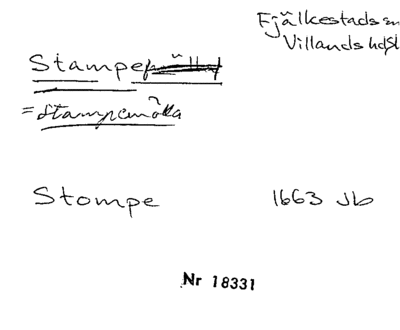 Fjälkestads sn
Villands hd Sk
Stampe
= Stampemölla
Stompe 1663 Jb
Nr 18331